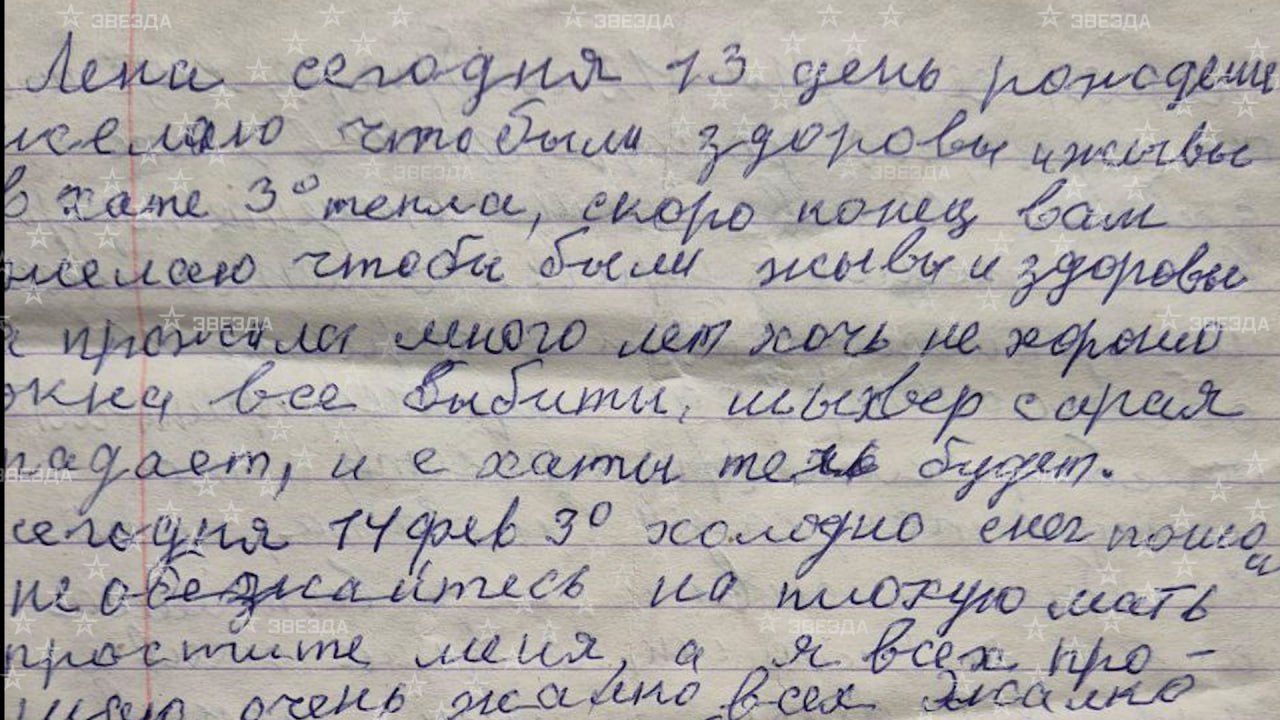 Лена сегодня 13 день рождение
желаю что были здоровы и жывы
в хате 3° тепла, скоро конец вам
желаю чтобы были жывы и здоровы
я прожила много лет хочь не хорошо
окна все выбиты, шыхвер сарая
падает, и с хаты те будет.
сегодня 14 фев 3° холодно снег пошо
не обезжайтесь на плохую мать
простите меня, а я всех про-
щаю очень жалко всех жалко
ЗВЕЗДА